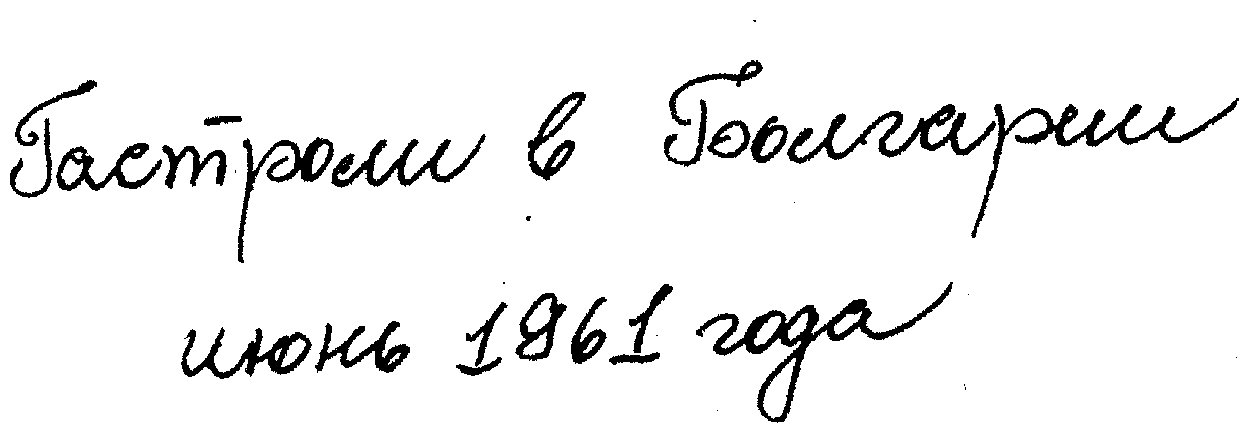 Гастроли в Болгарии
июнь 1961 года